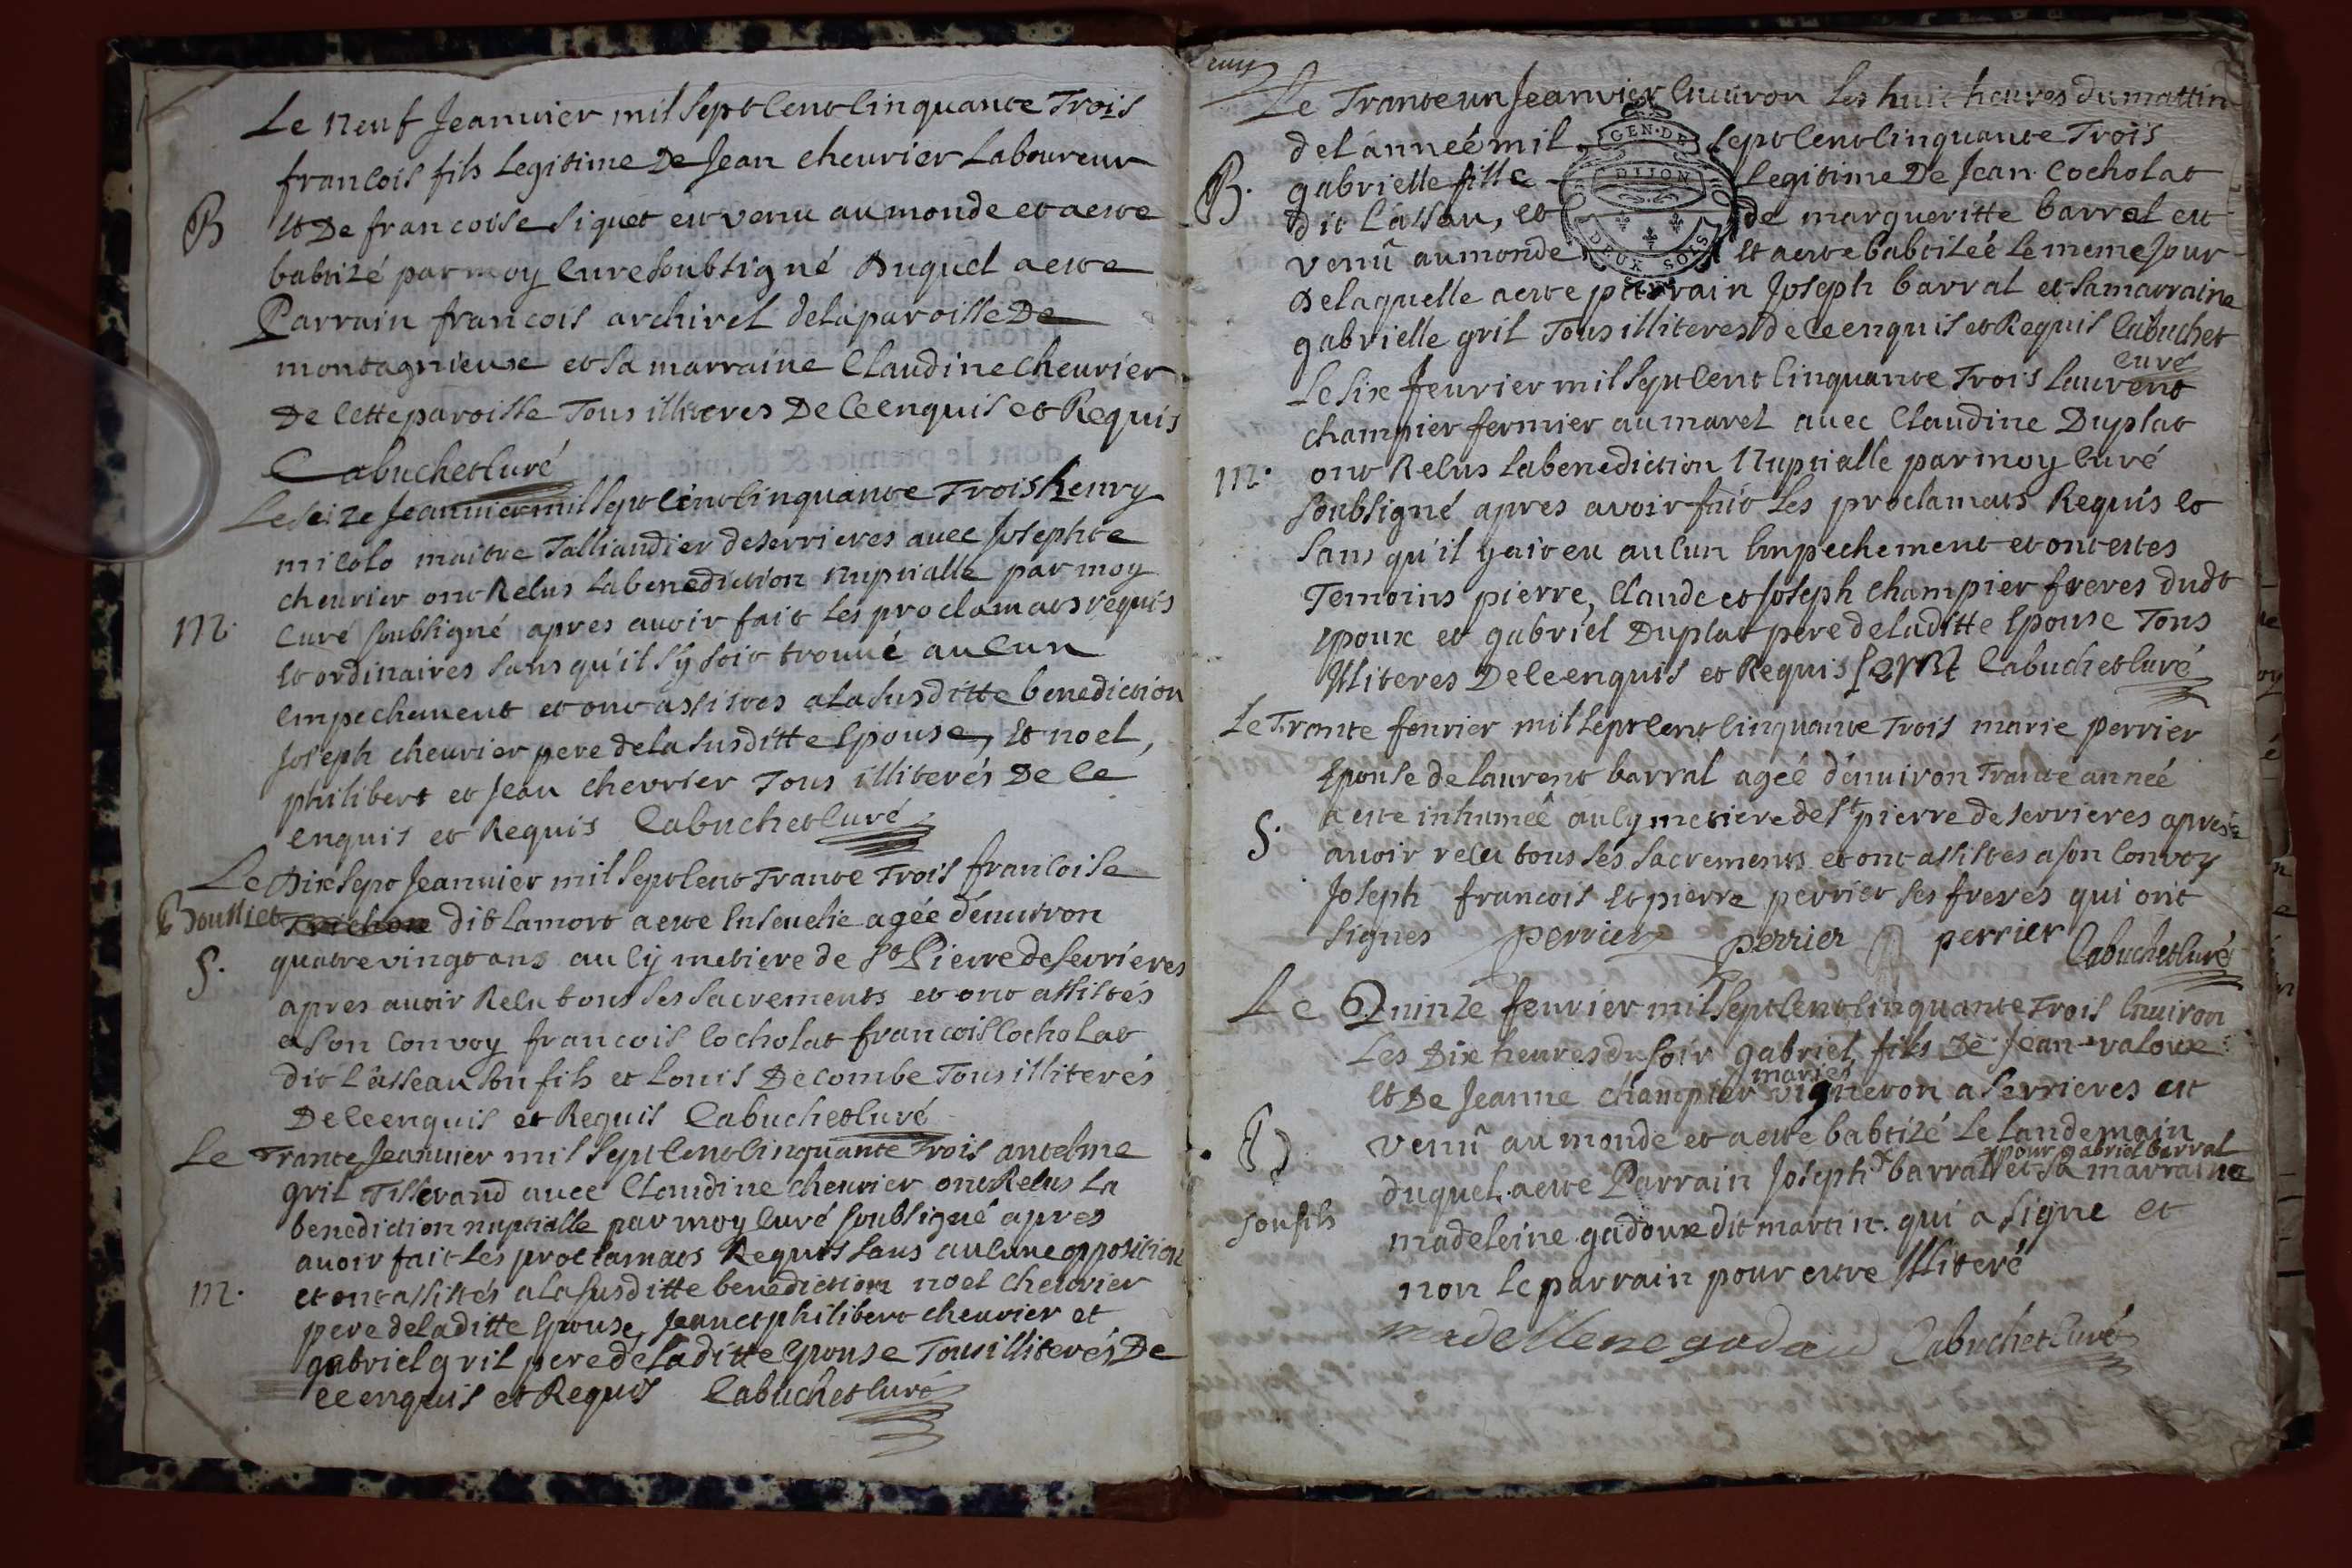 Le neuf Jeanvier mil sept cent cinquante Trois
francois fils legitime De Jean chevrier Laboureur
B et De francoise siquet est venu au monde et a este
babtizé par moy cure soubsigné Duquel a este
Parrain francois archirel de la paroisse De
montagnieux et sa marraine Claudine chevrier
De cette paroisse Tous illiteres De ce enquis et Requis
Cabuchet Curé
Le seize Jeanvier mil sept cent cinquante Trois henry
micolo maitre Talliandier de serrieres avec Josephte
chevrier ont Relus la benediction nuptialle par moy
m. Curé soubsigné apres avoir fait les proclamats requis
et ordinaires sans qu'il s'y soit trouvé aucun
empechement et ont assistes a la susditte benediction
Joseph chevrier pere de la susditte epouse, et noel,
philibert et Jean chevrier Tous illiterés De ce
enquis et Requis Cabuchet Curé
Le Dix sept Jeanvier mil sept cent Trante Trois francoise
Boussiet Trichon dit lamort a este ensevelie agée d'environ
S. quatre vingt ans au cymetiere de St Pierre de serrieres
apres avoir Recu tous ses sacrements et ont assistés
a son convoy francois cocholat francois cocholat
dit l'asseau son fils et Louis Decombe Tous illiterés
De ce enquis et Requis Cabuchet Curé
Le Trante Jeanvier mil sept cent cinquante Trois antelme
gril Tisserand avec Claudine chevrier ont Relus La
benediction nuptialle par moy Curé soubsigné apres
avoir fait les proclamats Requis sans aucune opposition
m. et ont assistés a la susditte benediction noel chevrier
pere de laditte epouse, Jean et philibert chevrier et
gabriel gril pere de laditte epouse Tous illiterés De
ce enquis et Requis Cabuchet Curé
Le Trante un Jeanvier environ les huit heures du mattin
de l'anneé mil sept cent cinquante Trois
GEN. DE DIJON DEUX SOLS
B. gabrielle fille legitime De Jean Cocholat
dit l'asseau, et de margueritte barral est
venu au monde et a este babtizéé le meme Jour
De laquelle a este parrain Joseph barral et sa marraine
gabrielle gril Tous illiteres de ce enquis et Requis Cabuchet
curé
Le six fevrier mil sept cent cinquante Trois Laurent
champier fermier au marel avec Claudine Duplat
m. ont Relus la benediction Nuptialle par moy Curé
soubsigné apres avoir fait les proclamats Requis et
sans qu'il y ait eu aucun empechement et ont estes
Temoins pierre, Claude et Joseph champier freres dudt
epoux et gabriel Duplat pere de laditte epouse Tous
illiteres De ce enquis et Requis Cabuchet Curé
Le Trante fevrier mil sept cent cinquante Trois marie perrier
epouse de laurent barral ageé d'environ Trante anneé
S. a este inhumeé au cymetiere de St pierre de serrieres apres
avoir recu tous ses sacrements et ont assistes a son convoy
Joseph francois et pierre perrier ses freres qui ont
signes perrier perrier perrier Cabuchet Curé
Le Quinze fevrier mil sept cent cinquante Trois environ
Les Dix heures du soir gabriel fils De Jean valoux
mariés
et De Jeanne champier vigneron a serrieres est
B venu au monde et a este babtizé Le landemain
pour gabriel barral
duquel a este Parrain Joseph barral et sa marraine
son fils
madeleine gadoux dit martin. qui a signe et
non le parrain pour estre illiteré
madellene godau Cabuchet Curé